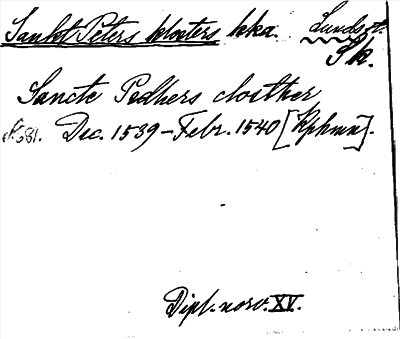 Sankt Peters klosters kka. Lunds st.
Sk.
Sancte Pedhers closther
s. 581. Dec. 1539–Febr. 1540 [Kphmn].
Dipl. norv. XV.